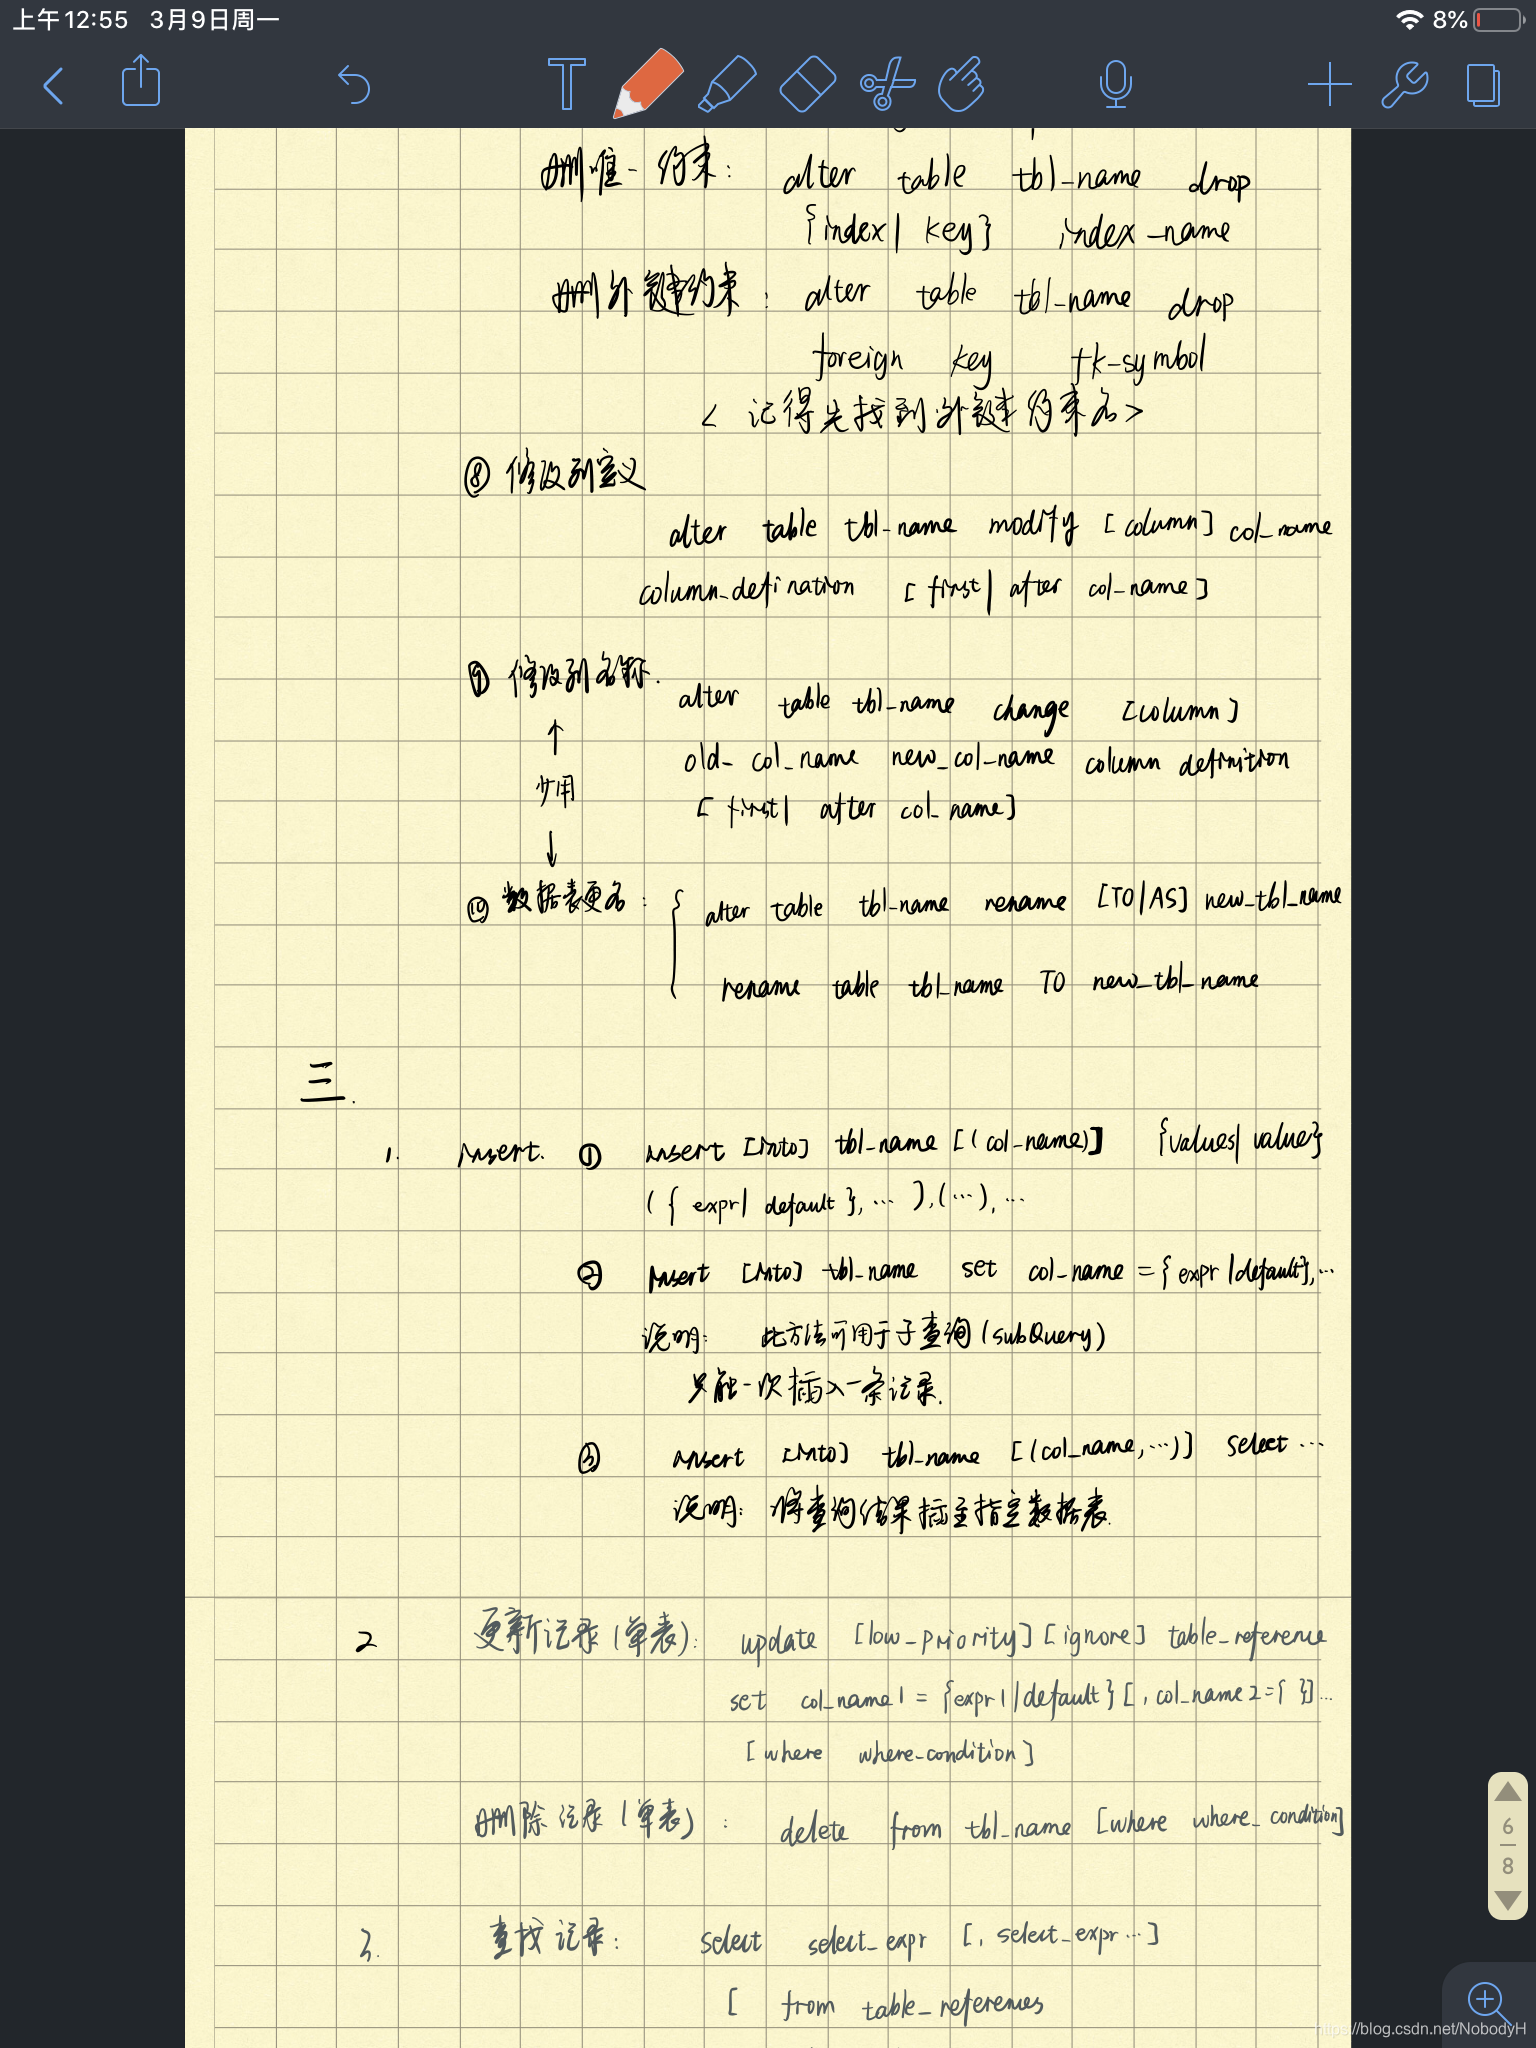 上午12:55 3月9日周一
8%
删唯一约束: alter table tbl_name drop
{index| key} index_name
删外键约束: alter table tbl_name drop
foreign key fk-symbol
<记得先找到外键约束名>
⑧ 修改列定义
alter table tbl_name modify [column] col_name
column_defination [first| after col_name]
⑨ 修改列名称.
alter table tbl_name change [column]
old_ col_name new_col_name column definition
[first| after col_name]
↑
少用
↓
⑩ 数据表更名: { alter table tbl_name rename [TO|AS] new_tbl_name
rename table tbl_name TO new_tbl_name
三.
1. insert. ① insert [into] tbl_name [(col_name)] {values| value}
({expr| default},…),(…),…
② insert [into] tbl_name set col_name={expr|default},…
说明: 此方法可用于子查询(subQuery)
只能一次插入一条记录.
③ insert [into] tbl_name [(col_name,…)] select …
说明: 将查询结果插至指定数据表.
2 更新记录(单表): update [low_priority][ignore] table_reference
set col_name1={expr1|default}[,col_name2={ }]…
[where where_condition]
删除记录(单表): delete from tbl_name [where where_condition]
3. 查找记录: select select_expr [, select_expr…]
[ from table_references
6
8
https://blog.csdn.net/NobodyH